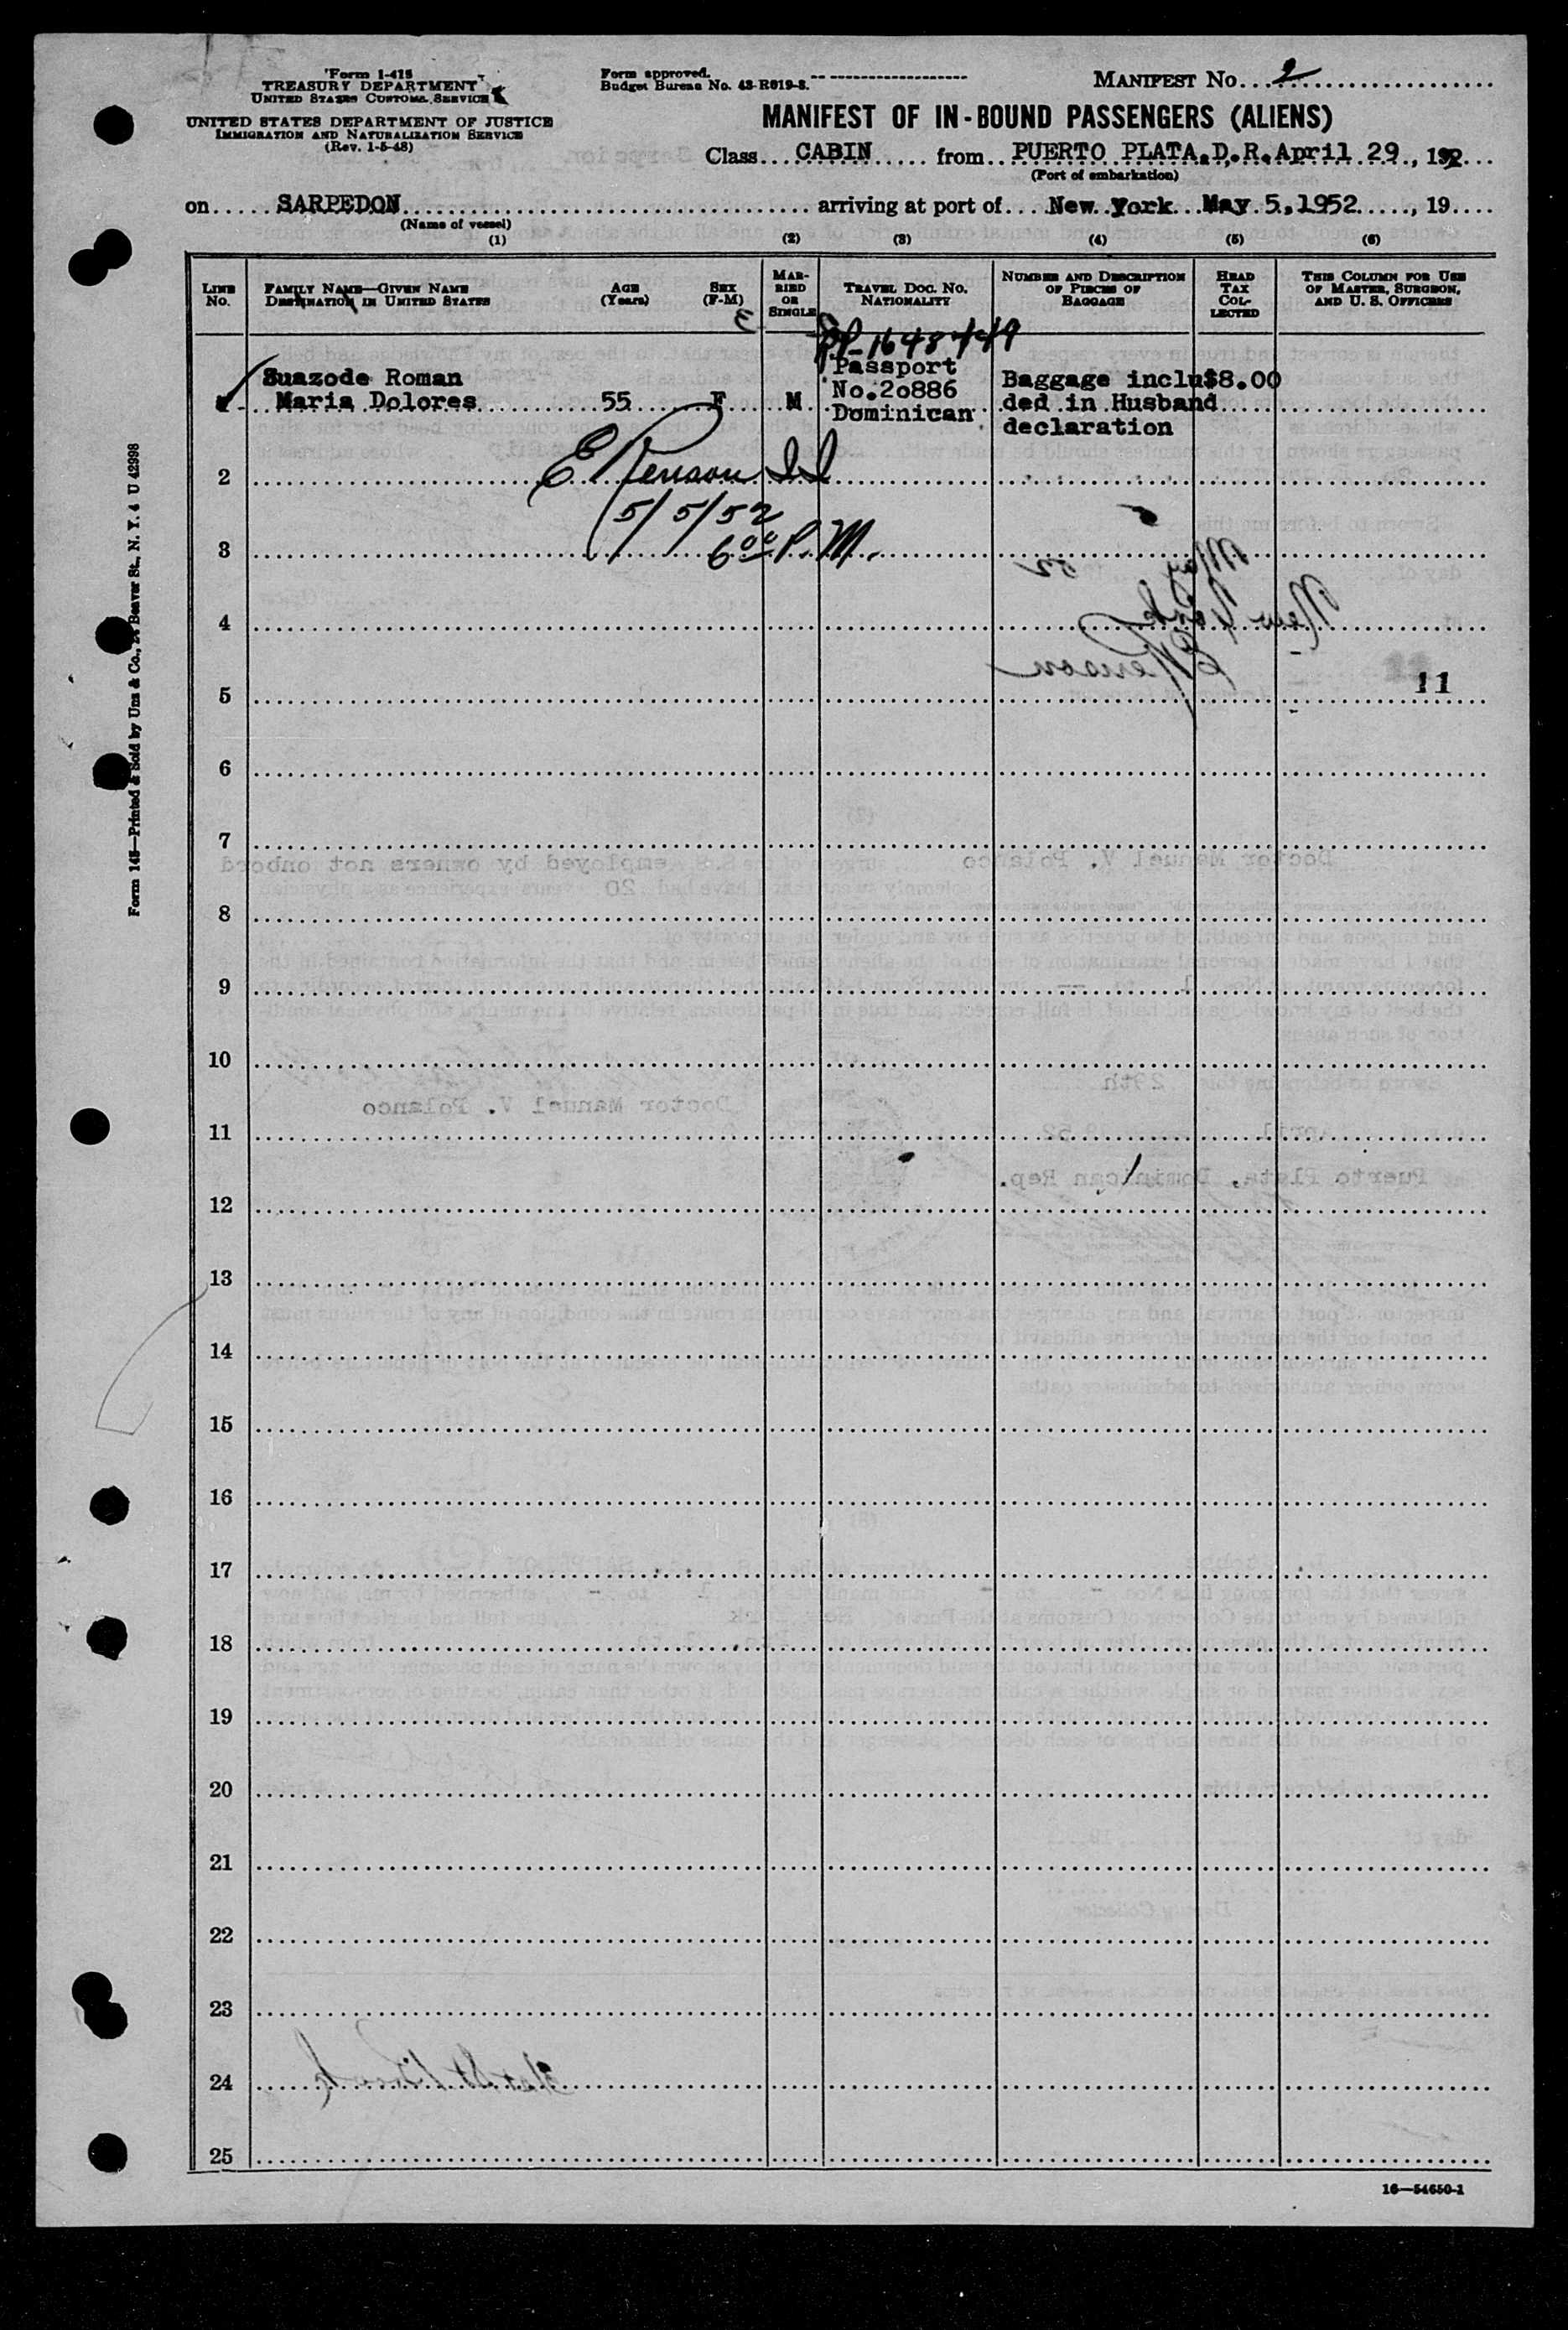 Form I-415
TREASURY DEPARTMENT
UNITED STATES CUSTOMS SERVICE
UNITED STATES DEPARTMENT OF JUSTICE
IMMIGRATION AND NATURALIZATION SERVICE
(Rev. 1-5-48)
Form approved.
Budget Bureau No. 43-R019-3.
MANIFEST No. 2
MANIFEST OF IN-BOUND PASSENGERS (ALIENS)
Class CABIN from PUERTO PLATA, D.R. April 29, 1952
(Port of embarkation)
on SARPEDON arriving at port of New York May 5, 1952, 19
(Name of vessel)
(1) (2) (3) (4) (5) (6)
LINE No. FAMILY NAME—GIVEN NAME DESTINATION IN UNITED STATES AGE (Years) SEX (F-M) MARRIED OR SINGLE TRAVEL DOC. NO. NATIONALITY NUMBER AND DESCRIPTION OF PIECES OF BAGGAGE HEAD TAX COLLECTED THIS COLUMN FOR USE OF MASTER, SURGEON, AND U. S. OFFICERS
PP-1648449
Suazode Roman Passport Baggage inclu $8.00
Maria Dolores 55 F M No.20886 ded in Husband
Dominican declaration
2
5/5/52
3 6 00 P.M.
4
5 11
6
7
8
9
10
11
12
13
14
15
16
17
18
19
20
21
22
23
24
25
16—54650-1
Form 145—Printed & Sold by Unz & Co., 24 Beaver St., N. Y. 4 U 42998